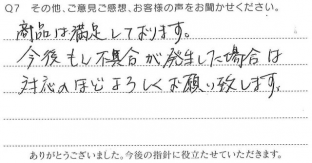 Q7 その他、ご意見ご感想、お客様の声をお聞かせください。
商品は満足しております。
今後もし不具合が発生した場合は
対応のほどよろしくお願い致します。
ありがとうございました。今後の指針に役立たせていただきます。